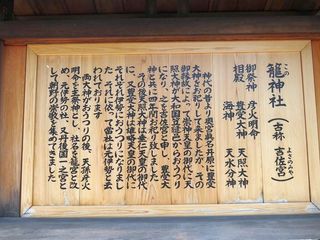 この
籠神社
（古称 吉佐宮）
よさのみや
御祭神 彦火明命
相殿 豊受大神 天照大神
海神 天水分神
神代の昔より奥宮眞名井原に豊受
大神をお祀りして来ましたが、その
御縁故によって崇神天皇の御代に天
照大神が大和国笠縫邑からおうつり
になり、之を吉佐宮と申し、豊受大
神と共に四年間お祀り致しました
その後天照大神は垂仁天皇の御代
に、又豊受大神は雄略天皇の御代に
それぞれ伊勢におうつりになりまし
た。それに依って當社は元伊勢と云
われております
両大神がおうつりの後、天孫彦火
明命を主祭神とし、社名を籠宮と改
め、元伊勢の社、又丹後国一之宮と
して朝野の崇敬を集めてきました